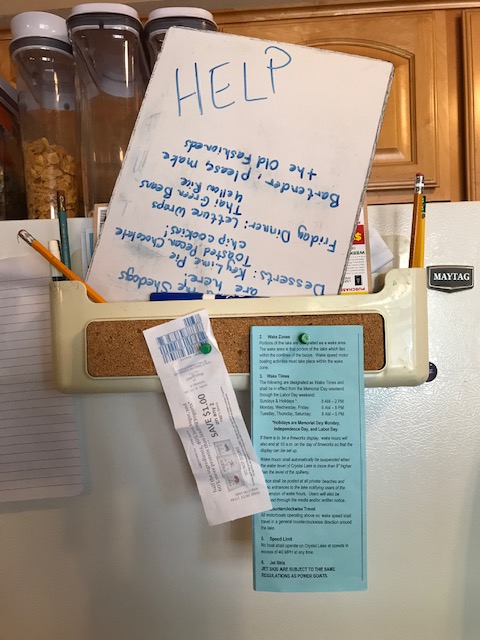 HELP
the Shedogs
are here:
Desserts: Key Lime Pie
Toasted Pecan Chocolate
chip cookies!
Friday Dinner: Lettuce Wraps
Thai Green Beans
Yellow Rice
Bartender, please, make
the Old Fashioneds
MAYTAG
SAVE $1.00
2. Wake Zones
Portions of the lake are designated as a wake area.
The wake area is that portion of the lake which lies
within the confines of the buoys. Wake speed motor
boating activities must take place within the wake
zone.
3. Wake Times
The following are designated as Wake Times and
shall be in effect from the Memorial Day weekend
through the Labor Day weekend:
Sundays & Holidays *: 8 AM – 2 PM
Monday, Wednesday, Friday 8 AM – 8 PM
Tuesday, Thursday, Saturday 8 AM – 5 PM
*Holidays are Memorial Day Monday,
Independence Day, and Labor Day.
If there is to be a fireworks display, wake hours will
also end at 10 a.m. on the day of fireworks so that the
display can be set up.
Wake hours shall automatically be suspended when
the water level of Crystal Lake is more than 6" higher
than the level of the spillway.
shall be posted at all private beaches and
entrances to the lake notifying users of the
of wake hours. Users will also be
through the media and/or written notice.
Counterclockwise Travel
All motorboats operating above no wake speed shall
travel in a general counterclockwise direction around
the lake.
5. Speed Limit
No boat shall operate on Crystal Lake at speeds in
excess of 40 MPH at any time.
6. Jet Skis
JET SKIS ARE SUBJECT TO THE SAME
REGULATIONS AS POWER BOATS.